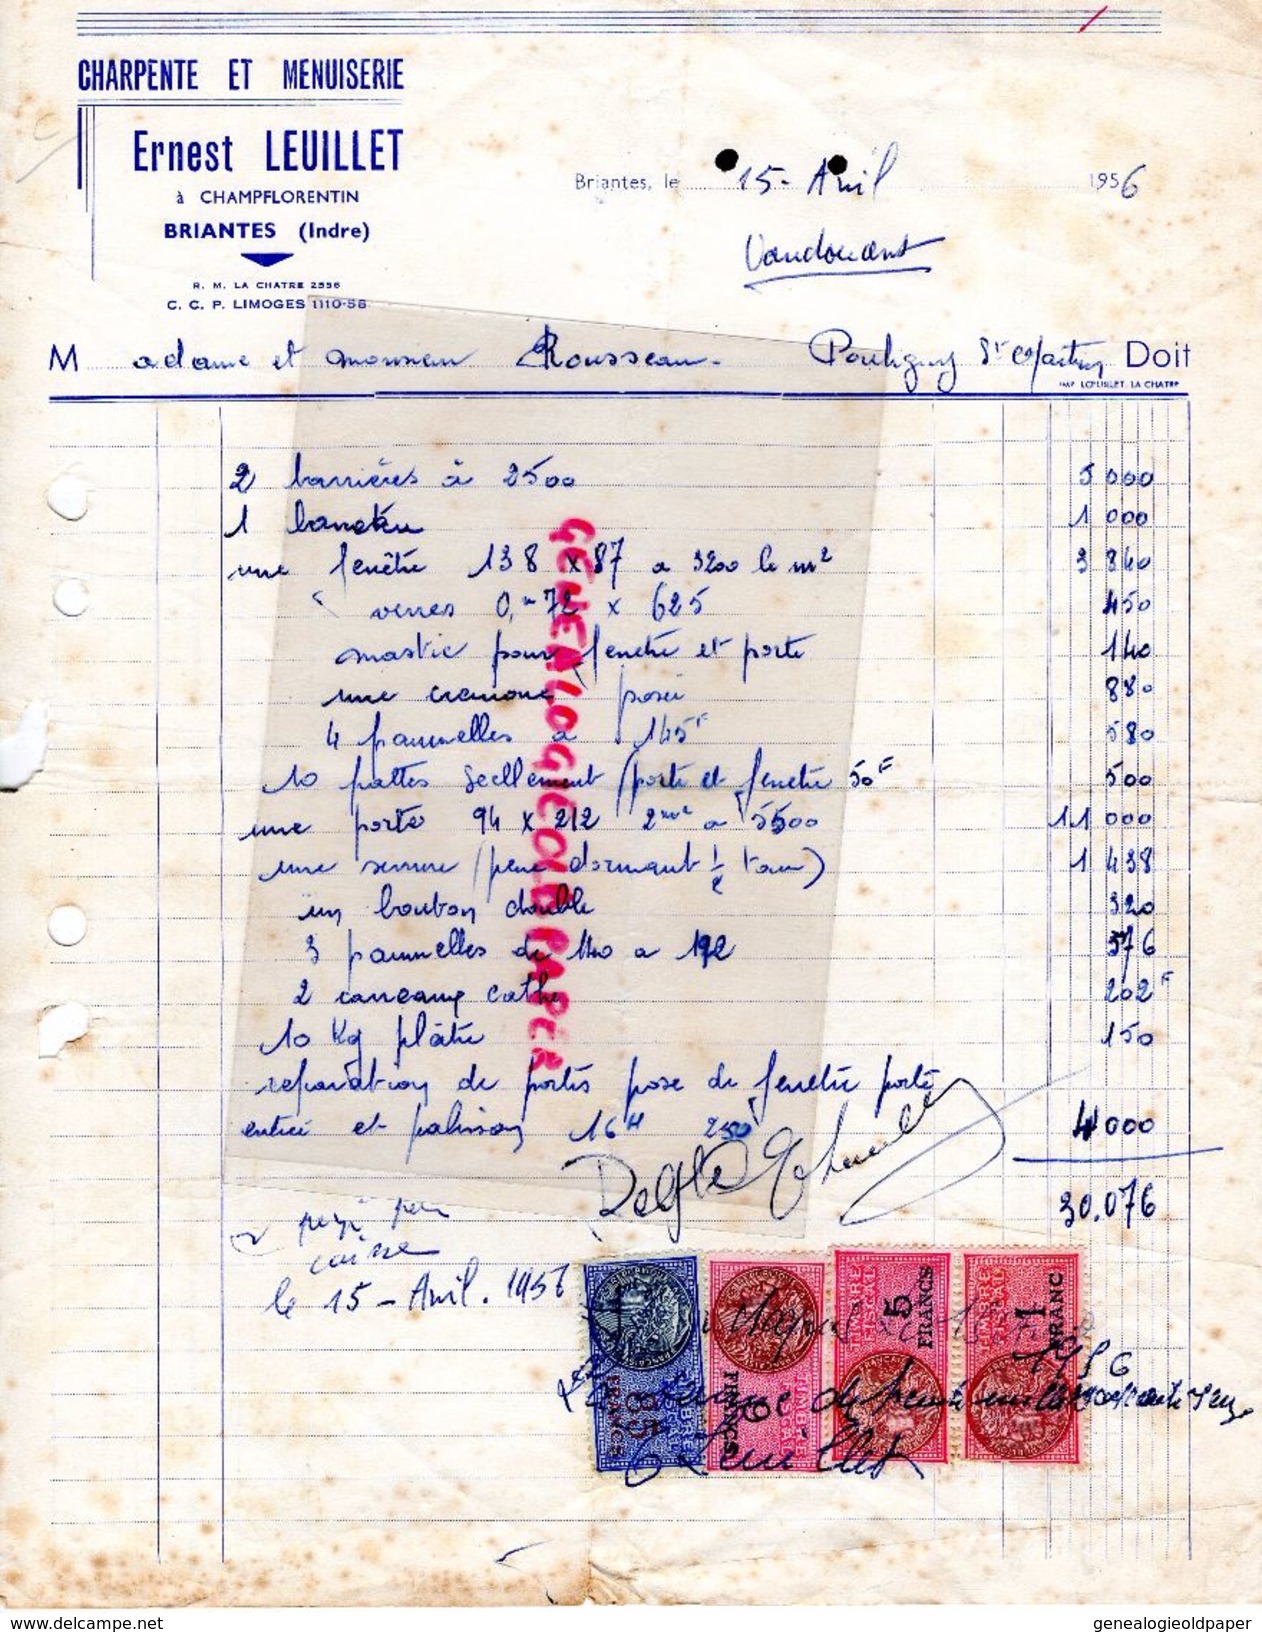 CHARPENTE ET MENUISERIE
Ernest LEUILLET
à CHAMPFLORENTIN
BRIANTES (Indre)
R. M. LA CHATRE 2556
C. C. P. LIMOGES 1110-58
Briantes, le 15 - Avril 1956
Vaudouant
Madame et monsieur Rousseau. Pouligny St Martin Doit
IMP. LŒUILLET. LA CHATRE
2 barrières à 2500 5 000
1 1 000
une fenêtre 138 x 87 a 3200 le m² 3 840
verres 0,m72 x 625 450
mastic pour fenetre et porte 140
une cremone posée 880
4 paumelles a 145F 580
10 pattes scellement (porte et fenetre 50F 500
une porte 94 x 212 2m² a 5500 11 000
une serrure (pene dormant 1/2 tour) 1 438
un bouton double 320
3 paumelles de 140 a 192 576
2 carreaux cathe 202F
10 Kg plâtre 150
reparation de portes pose de fenetre porte
entrée et palisson 16H 250F 4 000
30.076
payé par
caisse
le 15 - Avril. 1956
85 FRANCS
TIMBRE FISCAL
6 FRANCS
TIMBRE FISCAL
5 FRANCS
TIMBRE FISCAL
1 FRANC
TIMBRE FISCAL
1956
Leuillet
GENEALOGIEOLDPAPER
www.delcampe.net
genealogieoldpaper